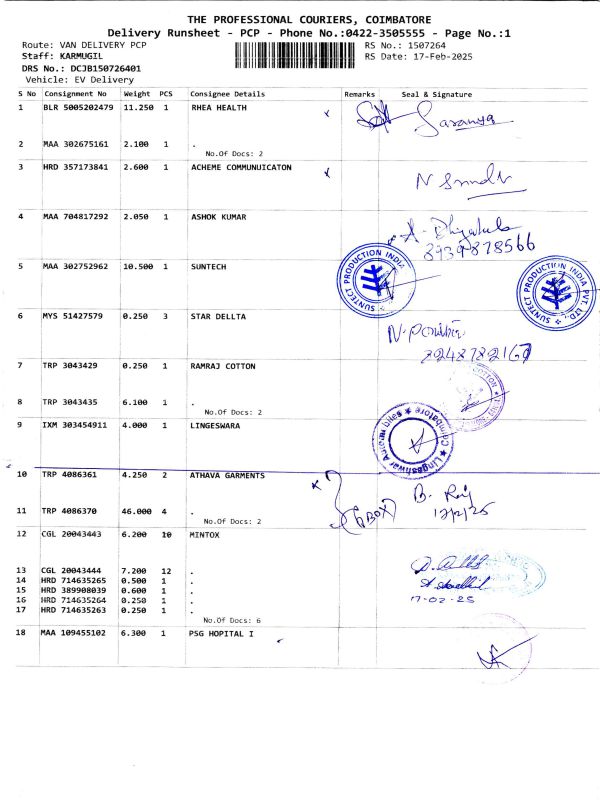 THE PROFESSIONAL COURIERS, COIMBATORE
Delivery Runsheet - PCP - Phone No.:0422-3505555 - Page No.:1
Route: VAN DELIVERY PCP RS No.: 1507264
Staff: KARMUGIL RS Date: 17-Feb-2025
DRS No.: DCJB150726401
Vehicle: EV Delivery
S No Consignment No Weight PCS Consignee Details Remarks Seal & Signature
1 BLR 5005202479 11.250 1 RHEA HEALTH x Saranya
2 MAA 302675161 2.100 1 .
No.Of Docs: 2
3 HRD 357173841 2.600 1 ACHEME COMMUNUICATON x
4 MAA 704817292 2.050 1 ASHOK KUMAR
8939878566
5 MAA 302752962 10.500 1 SUNTECH
SUNTECT PRODUCTION INDIA
SUNTECT PRODUCTION INDIA PVT. LTD.
6 MYS 51427579 0.250 3 STAR DELLTA
7 TRP 3043429 0.250 1 RAMRAJ COTTON
COTTON
8 TRP 3043435 6.100 1 .
No.Of Docs: 2
9 IXM 303454911 4.000 1 LINGESWARA
Coimbatore
10 TRP 4086361 4.250 2 ATHAVA GARMENTS x
B. Raj
11 TRP 4086370 46.000 4 . (BOX) 17/2/25
No.Of Docs: 2
12 CGL 20043443 6.200 10 MINTOX
13 CGL 20043444 7.200 12 .
14 HRD 714635265 0.500 1 .
15 HRD 389908039 0.600 1 .
16 HRD 714635264 0.250 1 . 17-02-25
17 HRD 714635263 0.250 1 .
No.Of Docs: 6
18 MAA 109455102 6.300 1 PSG HOPITAL I